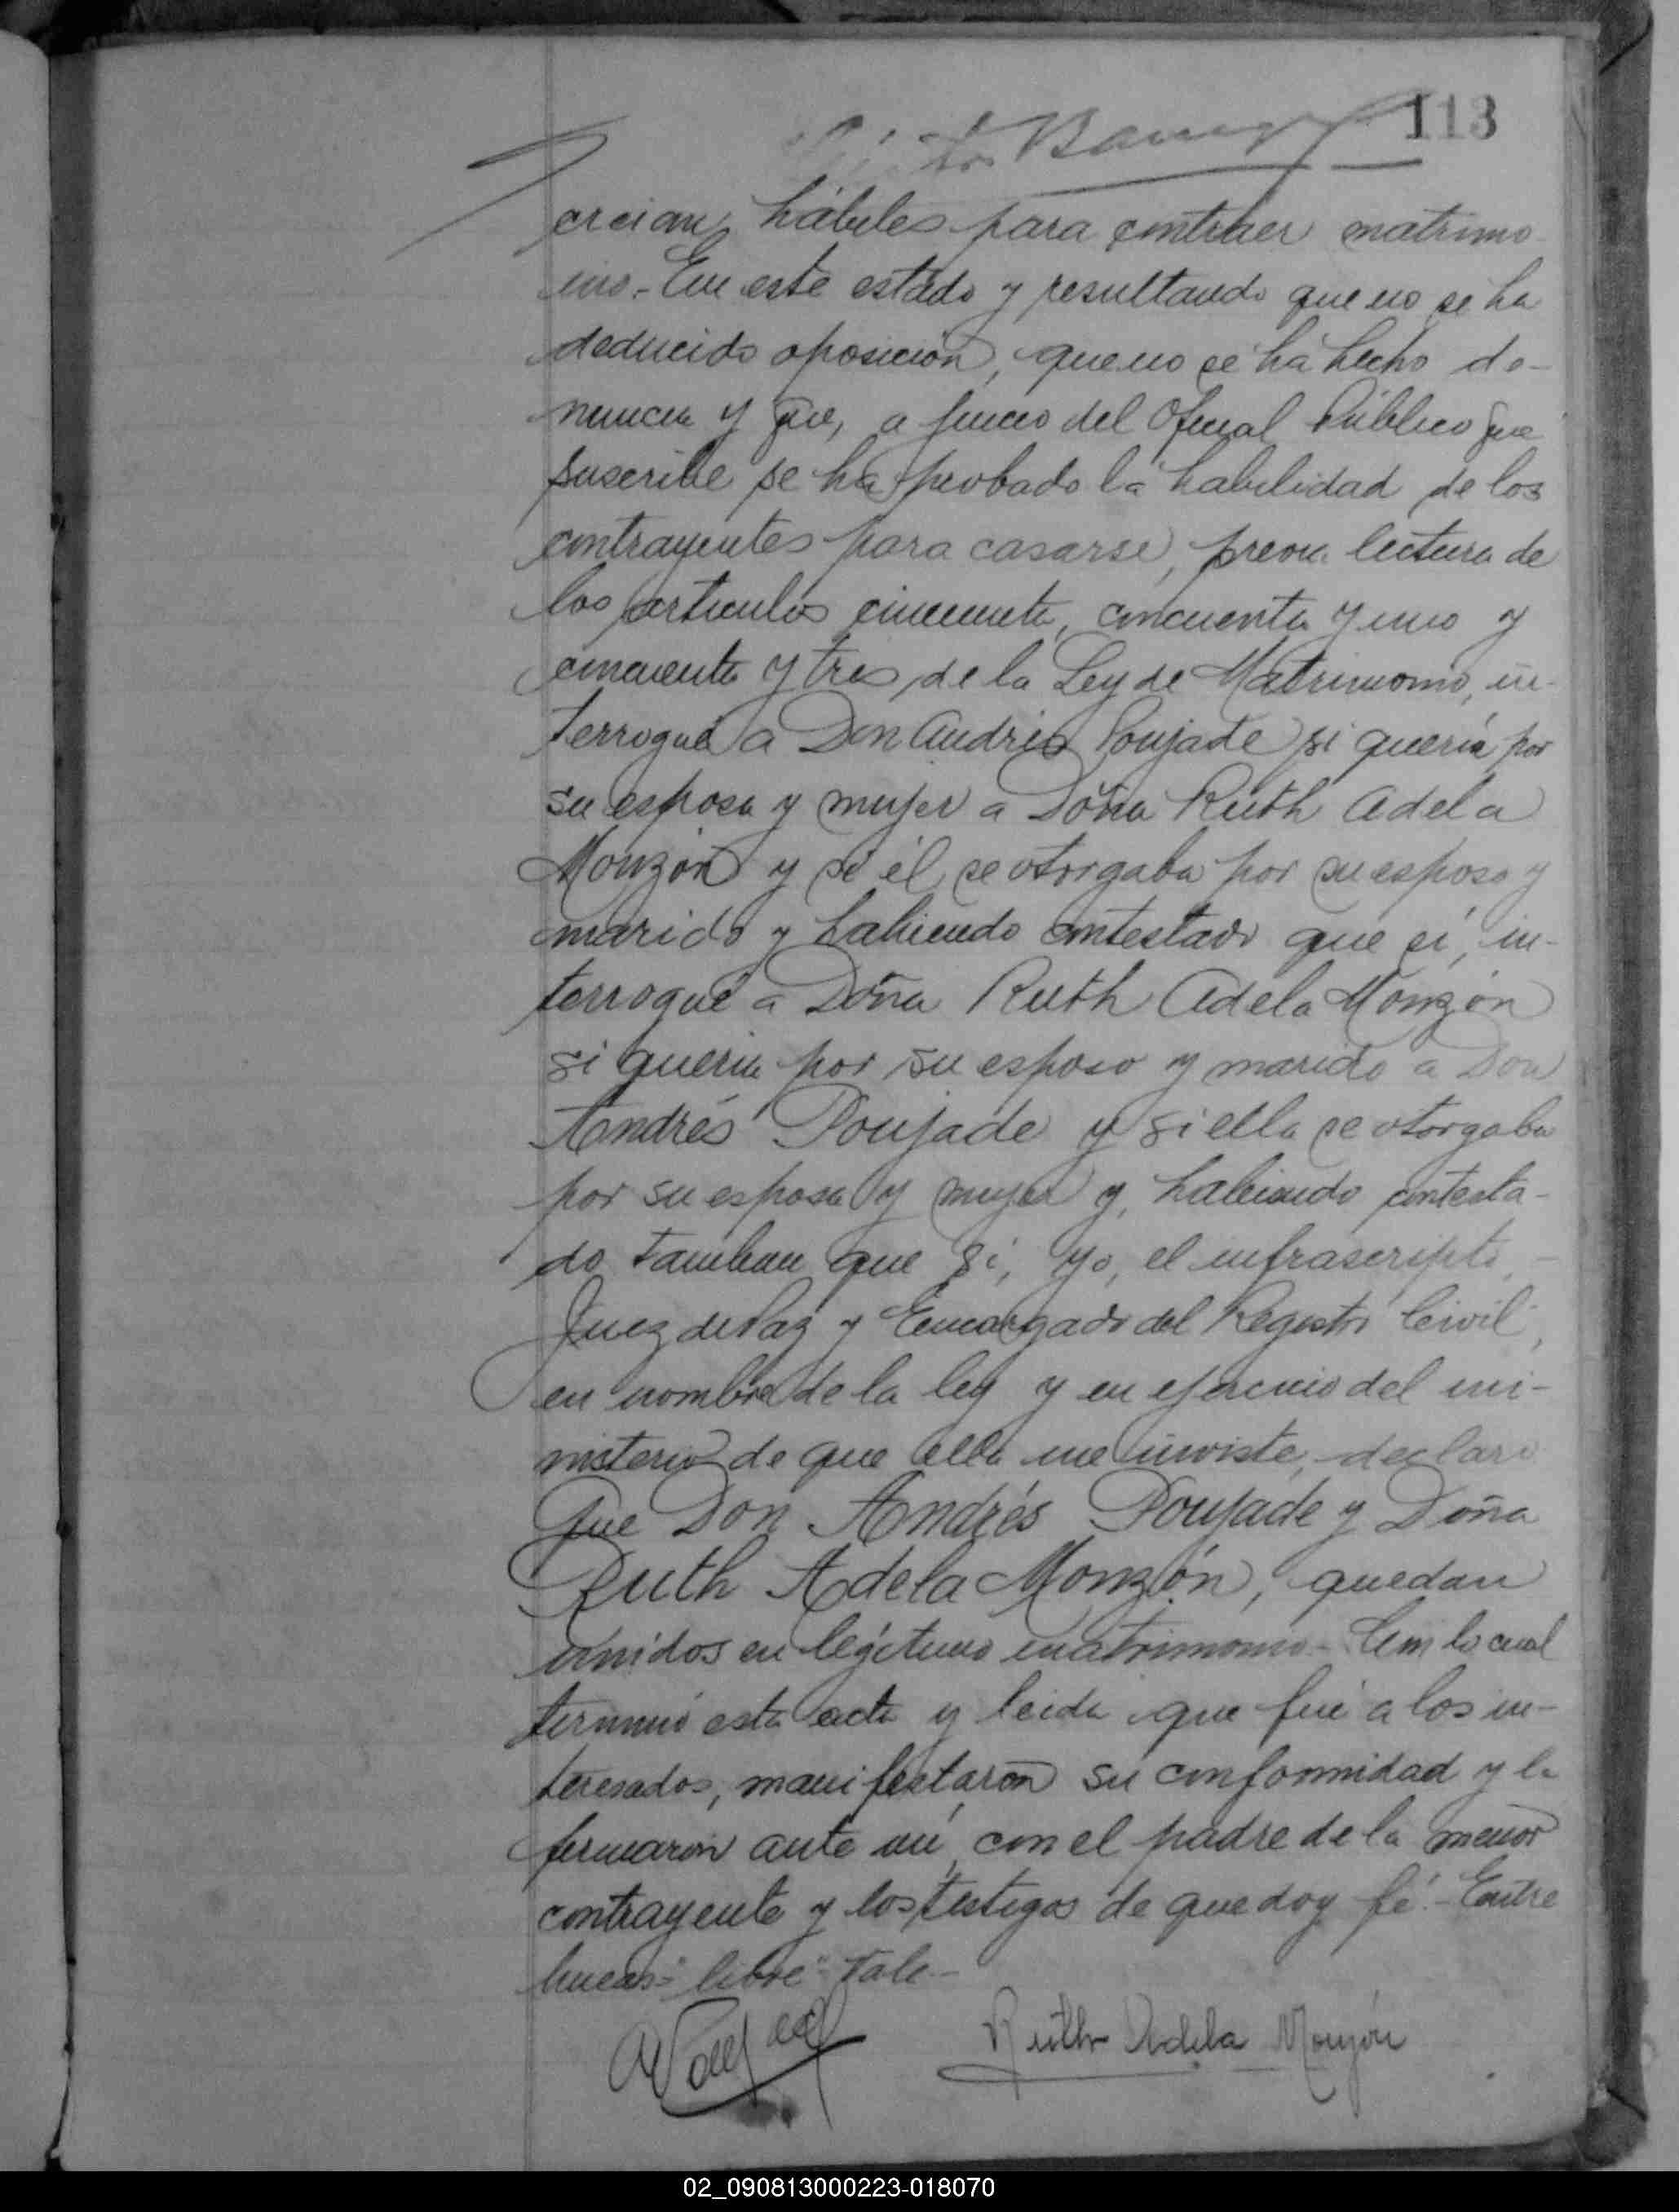 113
creian hábiles para contraer matrimo-
nio.- En este estado y resultando que no se ha
deducido oposición, que no se ha hecho de-
nuncia y que, a juicio del Oficial Público que
suscribe se ha probado la habilidad de los
contrayentes para casarse, previa lectura de
los artículos cincuenta, cincuenta y uno y
cincuenta y tres de la Ley de Matrimonio, in-
terrogué a Don Andrés Poujade si quería por
su esposa y mujer a Doña Ruth Adela
Monzón y si él se otorgaba por su esposo y
marido y habiendo contestado que sí, in-
terrogué a Doña Ruth Adela Monzón
si quería por su esposo y marido a Don
Andrés Poujade y si ella se otorgaba
por su esposa y mujer y, habiendo contesta-
do tambien que sí, yo, el infrascripto,-
Juez de Paz y Encargado del Registro Civil,
en nombre de la ley y en ejercicio del mi-
nisterio de que ella me inviste, declaro
que Don Andrés Poujade y Doña
Ruth Adela Monzón, quedan
unidos en legítimo matrimonio.- Con lo cual
terminó esta acta y leida que fué a los in-
teresados, manifestaron su conformidad y la
firmaron ante mi, con el padre de la menor
contrayente y los testigos de que doy fé.- Entre
lineas- "libre"- Vale.-
Ruth Adela Monzón
02_090813000223-018070